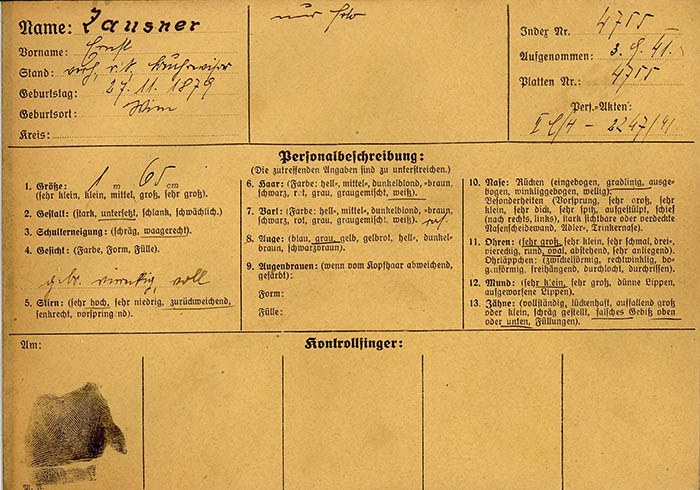 Name: Zausner
Vorname: Ernst
Stand: verh., r.k.,
Geburtstag: 27. 11. 1879
Geburtsort: Wien
Kreis:
nur Foto
Index Nr. 4755
Aufgenommen: 3. 9. 41.
Platten Nr.: 4755
Pers.-Akten:
2247/41
Personalbeschreibung:
(Die zutreffenden Angaben sind zu unterstreichen.)
1. Größe: 1 m 65 cm
(sehr klein, klein, mittel, groß, sehr groß).
2. Gestalt: (stark, untersetzt, schlank, schwächlich).
3. Schulterneigung: (schräg, waagerecht).
4. Gesicht: (Farbe, Form, Fülle).
voll
5. Stirn: (sehr hoch, sehr niedrig, zurückweichend,
senkrecht, vorspringend).
6. Haar: (Farbe: hell-, mittel-, dunkelblond, -braun,
schwarz, rot, grau, graugemischt, weiß).
7. Bart: (Farbe: hell-, mittel-, dunkelblond, -braun,
schwarz, rot, grau, graugemischt, weiß).
8. Auge: (blau, grau, gelb, gelbrot, hell-, dunkel-
braun, schwarzbraun).
9. Augenbrauen: (wenn vom Kopfhaar abweichend,
gefärbt):
Form:
Fülle:
10. Nase: Rücken (eingebogen, gradlinig, ausge-
bogen, winkliggebogen, wellig):
Besonderheiten (Vorsprung, sehr groß, sehr
klein, sehr dick, sehr spitz, aufgestülpt, schief
(nach rechts, links), stark sichtbare oder verdeckte
Nasenscheidewand, Adler-, Trinkernase).
11. Ohren: (sehr groß, sehr klein, sehr schmal, drei-,
viereckig, rund, oval, abstehend, sehr anliegend).
Ohrläppchen: (zwickelförmig, rechtwinklig, bo-
g.nförmig, freihängend, durchlocht, durchrissen).
12. Mund: (sehr klein, sehr groß, dünne Lippen,
aufgeworfene Lippen).
13. Zähne: (vollständig, lückenhaft, auffallend groß
oder klein, schräg gestellt, falsches Gebiß oben
oder unten, Füllungen).
Am:
Kontrollfinger: